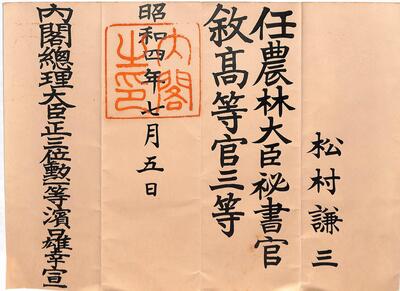 松村謙三
任農林大臣祕書官
敘高等官三等
昭和四年七月五日
內閣之印
內閣總理大臣正三位勲一等濱口雄幸宣